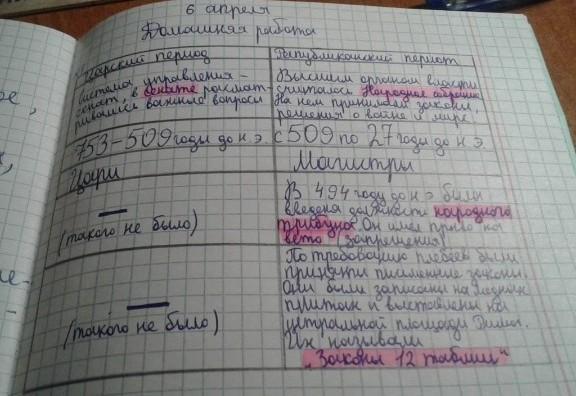 6 апреля
Домашняя работа
Царский период
Республиканский период
система управления -
сенат, в сенате рассмат-
ривались важные вопросы
Высшим органом власти
считалось Народное собрание
На нем принимали законы,
решения о войне и мире.
753-509 годы до н.э.
с 509 по 27 годы до н.э.
Цари
Магистры
—
(такого не было)
В 494 году до н.э. были
введена должность народного
трибуна. Он имел право на
вето (запрещения)
—
(такого не было)
По требованию плебеев были
приняты письменные законы.
Они были записаны на медных
плитах и выставлены на
центральной площади Рима.
Их называли
„Законы 12 таблиц"